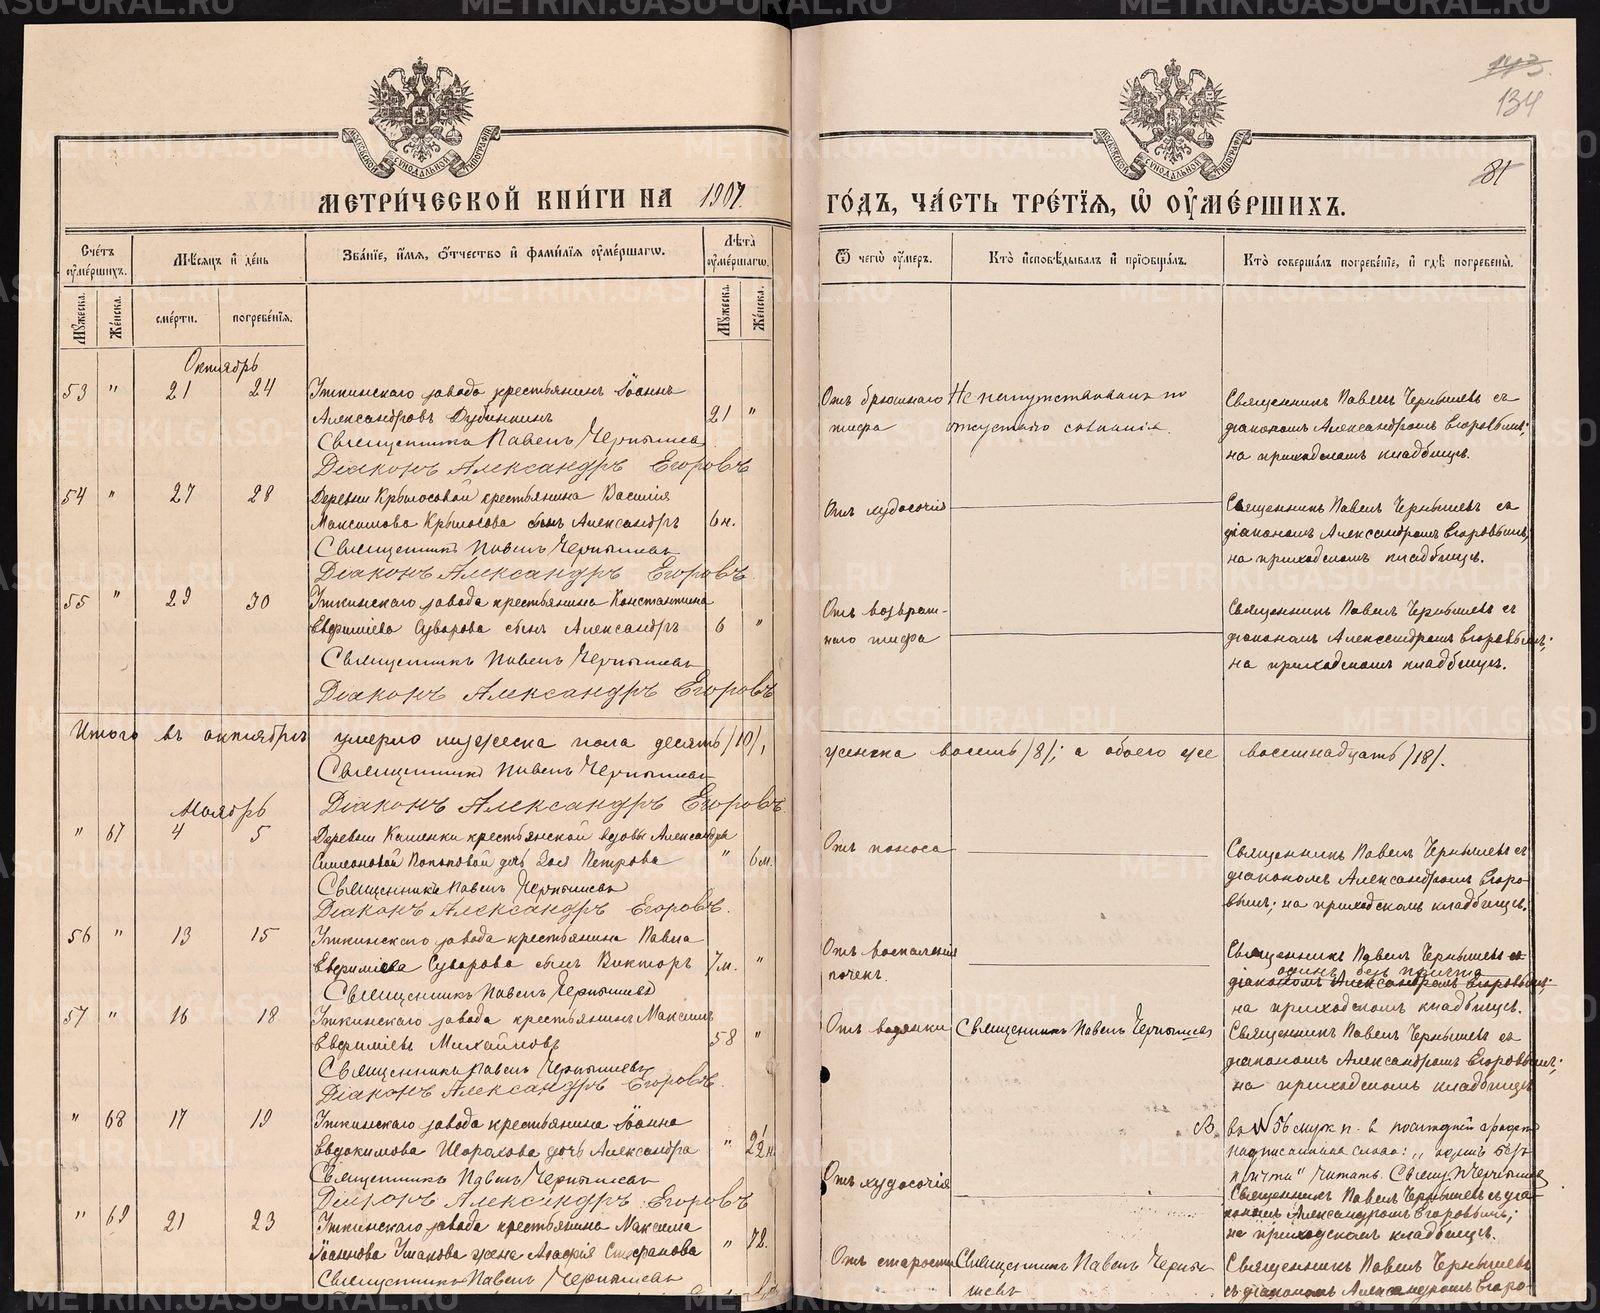 134
81
МЕТРИЧЕСКОЙ КНИГИ НА 1907 ГОДЪ, ЧАСТЬ ТРЕТІЯ, Ѿ ОУМЕРШИХЪ.
Счетъ оумершихъ.
Мѣсяцъ и день
Званіе, имя, отчество и фамилія оумершагѡ.
Лѣта оумершагѡ.
Ѿ чегѡ оумеръ.
Кто исповѣдывалъ и пріобщалъ.
Кто совершалъ погребеніе, и гдѣ погребены.
Мужеска.
Женска.
смерти.
погребенія.
Мужеска.
Женска.
Октябрь
53 " 21 24 Уткинскаго завода крестьянинъ Іоаннъ
Александровъ Дубинкинъ 21 "
Священникъ Павелъ Чернышевъ
Діаконъ Александръ Егоровъ
Отъ брюшнаго
тифа
отсутствію сознанія.
Священникъ Павелъ Чернышевъ съ
діакономъ Александромъ Егоровымъ;
на приходскомъ кладбищѣ.
54 " 27 28 Деревни Крылосовой крестьянина Василія
Максимова Крылосова сынъ Александръ 6н.
Священникъ Павелъ Чернышевъ
Діаконъ Александръ Егоровъ
Отъ худосочія
Священникъ Павелъ Чернышевъ съ
діакономъ Александромъ Егоровымъ;
на приходскомъ кладбищѣ.
55 " 29 30 Уткинскаго завода крестьянина Константина
Евфиміева Суворова сынъ Александръ 6 "
Священникъ Павелъ Чернышевъ
Діаконъ Александръ Егоровъ
Отъ возврат-
наго тифа
Священникъ Павелъ Чернышевъ съ
діакономъ Александромъ Егоровымъ;
на приходскомъ кладбищѣ.
Итого въ октябрѣ умерло мужеска пола десять /10/,
женска восемь /8/; а обоего уже восемнадцать /18/.
Священникъ Павелъ Чернышевъ
Діаконъ Александръ Егоровъ
Ноябрь
" 67 4 5 Деревни Каменки крестьянской вдовы Александры
Симеоновой Потаповой дочь Зоя Петрова " 6м.
Священникъ Павелъ Чернышевъ
Діаконъ Александръ Егоровъ.
Отъ поноса
Священникъ Павелъ Чернышевъ съ
діакономъ Александромъ Егоро-
вымъ; на приходскомъ кладбищѣ.
56 " 13 15 Уткинскаго завода крестьянина Павла
Евфиміева Суворова сынъ Викторъ 7м. "
Священникъ Павелъ Чернышевъ
Отъ воспаленія
почекъ.
Священникъ Павелъ Чернышевъ съ
одинъ безъ причта
діакономъ Александромъ Егоровымъ;
на приходскомъ кладбищѣ.
57 " 16 18 Уткинскаго завода крестьянинъ Максимъ
Евфиміевъ Михайловъ 58 "
Священникъ Павелъ Чернышевъ
Діаконъ Александръ Егоровъ.
Отъ водянки
Священникъ Павелъ Чернышевъ
Священникъ Павелъ Чернышевъ съ
діакономъ Александромъ Егоровымъ;
на приходскомъ кладбищѣ
" 68 17 19 Уткинскаго завода крестьянина Іоанна
Евдокимова Шорохова дочь Александра "
Священникъ Павелъ Чернышевъ
Діаконъ Александръ Егоровъ
Отъ худосочія
В въ № 56 муж п. въ послѣдней графѣ
надписанныя слова: "одинъ безъ
причта" читать. Свящ. П. Чернышев
Священникъ Павелъ Чернышевъ съ діа-
кономъ Александромъ Егоровымъ;
на приходскомъ кладбищѣ.
" 69 21 23 Уткинскаго завода крестьянина Максима
Іоаннова Ушакова жена Агафія Стефанова " 72.
Священникъ Павелъ Чернышевъ
Отъ старости
Священникъ Павелъ Черны-
шевъ
Священникъ Павелъ Чернышевъ
съ діакономъ Александромъ Егоро-
METRIKI.GASO-URAL.RU